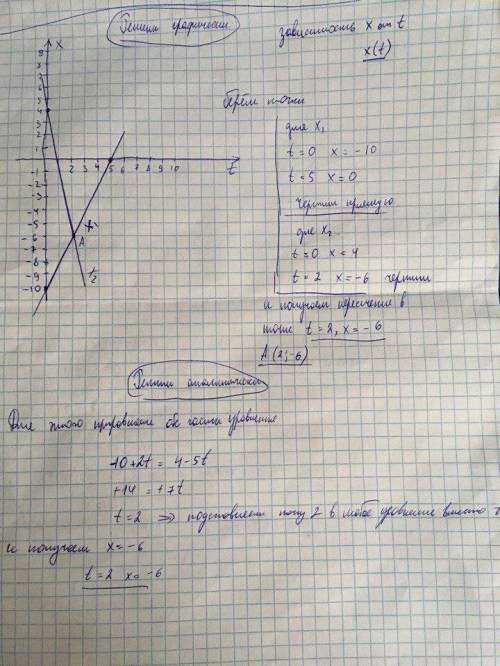 Решим графически
зависимость x от t
x(t)
Берём точки
для x₁
t=0 x=-10
t=5 x=0
чертим прямую
для x₂
t=0 x=4
t=2 x=-6 чертим
и получаем пересечение в
точке t=2, x=-6
A(2;-6)
x
9
8
7
6
5
4
3
2
1
2 3 4 5 6 7 8 9 10
t
-1
-2
-3
-4
-5
-6
-7
-8
-9
-10
A
Решим аналитически
Для этого приравниваем обе части уравнения
-10+2t = 4-5t
+14 = +7t
t=2 => подставляем 2 в любое уравнение вместо t
и получаем x=-6
t=2 x=-6